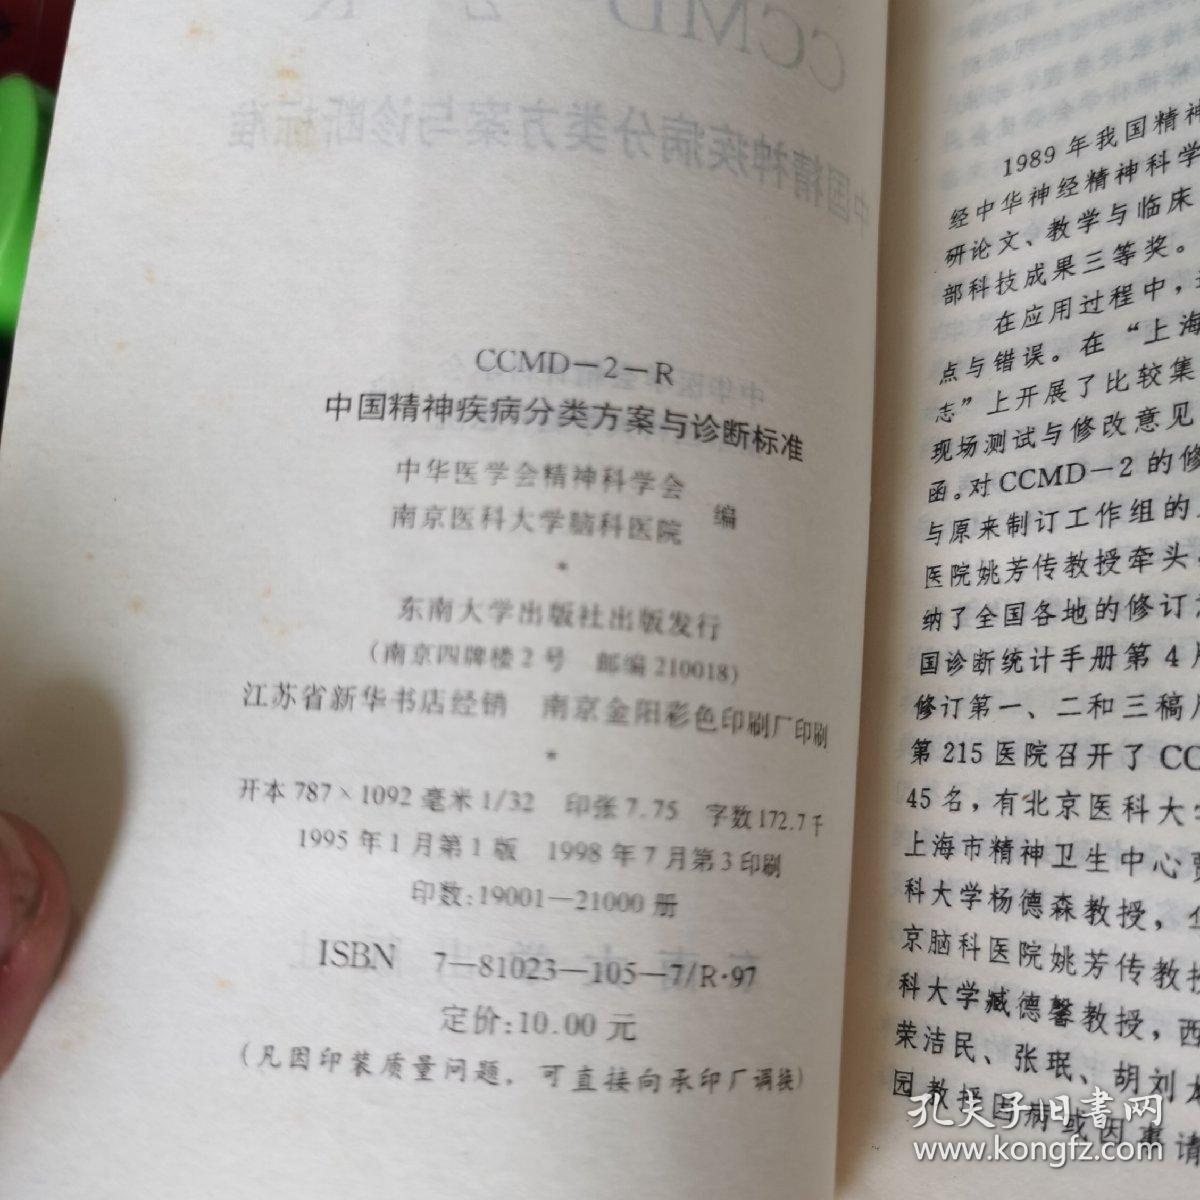 CCMD－2－R
中国精神疾病分类方案与诊断标准
中华医学会精神科学会
南京医科大学脑科医院 编
*
东南大学出版社出版发行
(南京四牌楼2号 邮编210018)
江苏省新华书店经销 南京金阳彩色印刷厂印刷
*
开本787×1092毫米1/32 印张7.75 字数172.7千
1995年1月第1版 1998年7月第3印刷
印数:19001—21000册
ISBN 7—81023—105—7/R·97
定价:10.00元
(凡因印装质量问题，可直接向承印厂调换)
1989年我国精神
经中华神经精神科学
研论文、教学与临床
部科技成果三等奖。
在应用过程中，
点与错误。在“上海
志”上开展了比较集
现场测试与修改意见
函。对CCMD－2的修
与原来制订工作组的
医院姚芳传教授牵头
纳了全国各地的修订
国诊断统计手册第4
修订第一、二和三稿
第215医院召开了CC
45名，有北京医科大
上海市精神卫生中心
科大学杨德森教授，
京脑科医院姚芳传教授
科大学臧德馨教授，西
荣洁民、张珉、胡刘
园教授因病或因事请
孔夫子旧书网
www.kongfz.com